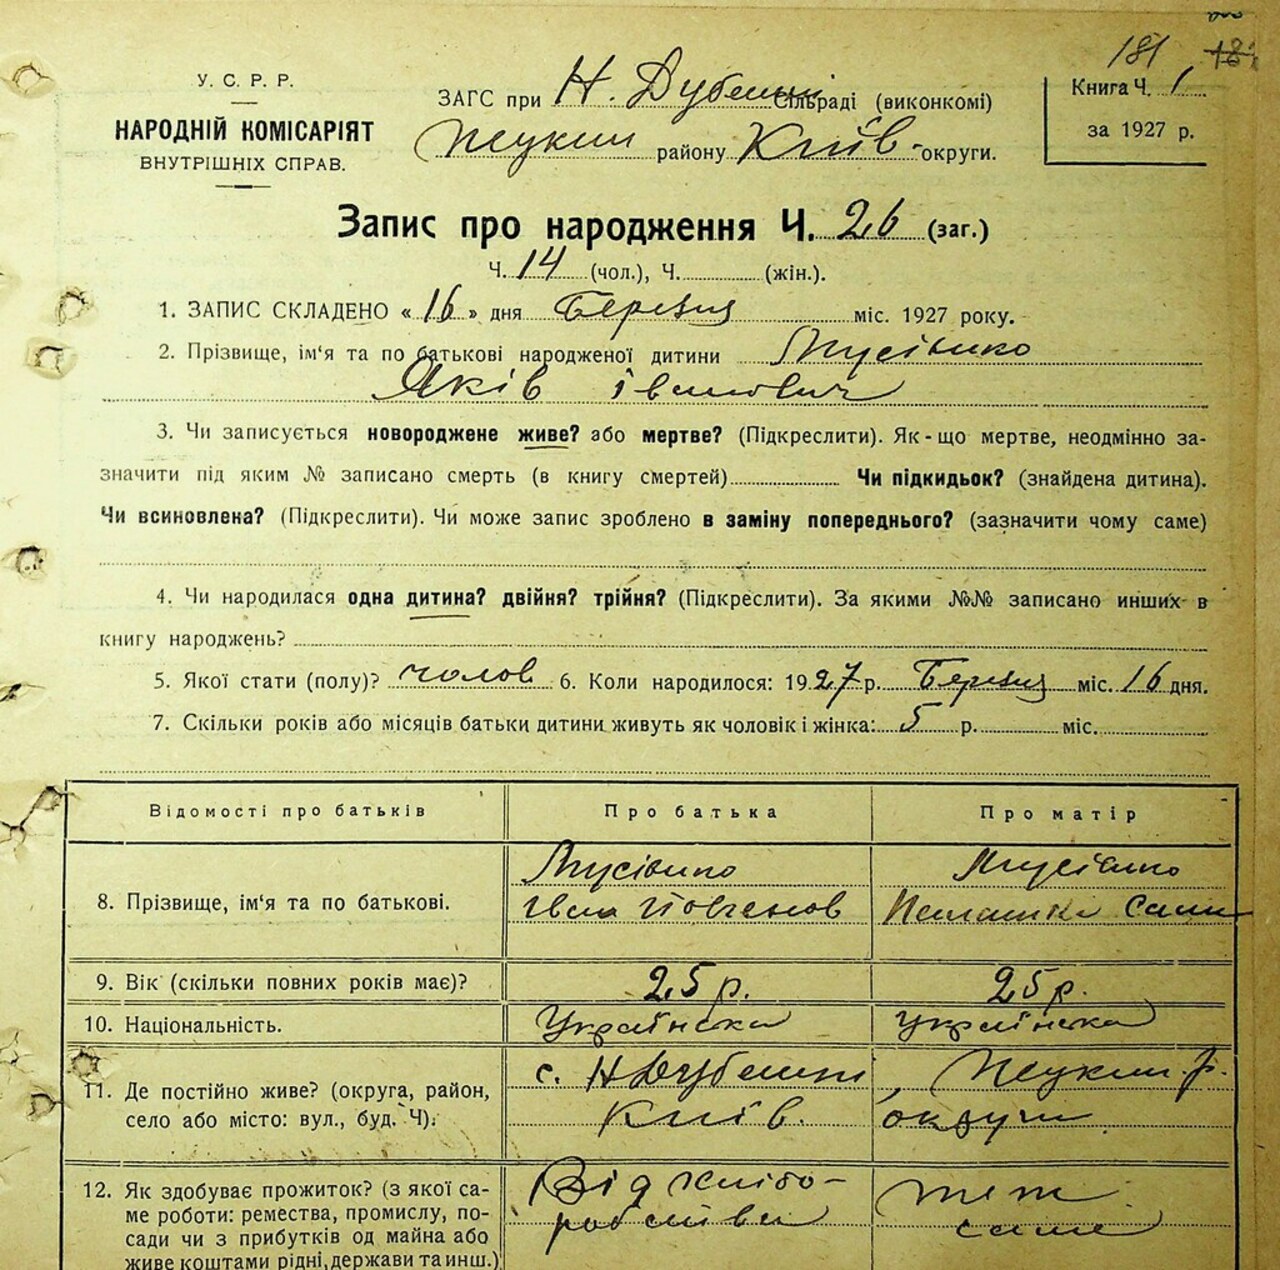 181
У. С. Р. Р.
НАРОДНІЙ КОМІСАРІЯТ
ВНУТРІШНІХ СПРАВ.
ЗАГС при Н. Дубечні Сільраді (виконкомі)
району Київ-округи.
Книга Ч. 1
за 1927 р.
Запис про народження Ч. 26 (заг.)
Ч. 14 (чол.), Ч. (жін.).
1. ЗАПИС СКЛАДЕНО « 16 » дня Березня міс. 1927 року.
2. Прізвище, ім‘я та по батькові народженої дитини Мусієнко
Яків Іванович
3. Чи записується новороджене живе? або мертве? (Підкреслити). Як-що мертве, неодмінно за-
значити під яким № записано смерть (в книгу смертей) Чи підкидьок? (знайдена дитина).
Чи всиновлена? (Підкреслити). Чи може запис зроблено в заміну попереднього? (зазначити чому саме)
4. Чи народилася одна дитина? двійня? трійня? (Підкреслити). За якими №№ записано инших в
книгу народжень?
5. Якої стати (полу)? чолов 6. Коли народилося: 1927 р. Березня міс. 16 дня.
7. Скільки років або місяців батьки дитини живуть як чоловік і жінка: 5 р. міс.
Відомості про батьків Про батька Про матір
8. Прізвище, ім‘я та по батькові. Мусієнко Мусієнко
Іван
9. Вік (скільки повних років має)? 25 р. 25 р.
10. Національність. Українська Українська
11. Де постійно живе? (округа, район, с. Н Дубечні
село або місто: вул., буд. Ч). Київ. округи
12. Як здобуває прожиток? (з якої са- Від хлібо- теж
ме роботи: ремества, промислу, по- робства саме
сади чи з прибутків од майна або
живе коштами рідні, держави та инш.)